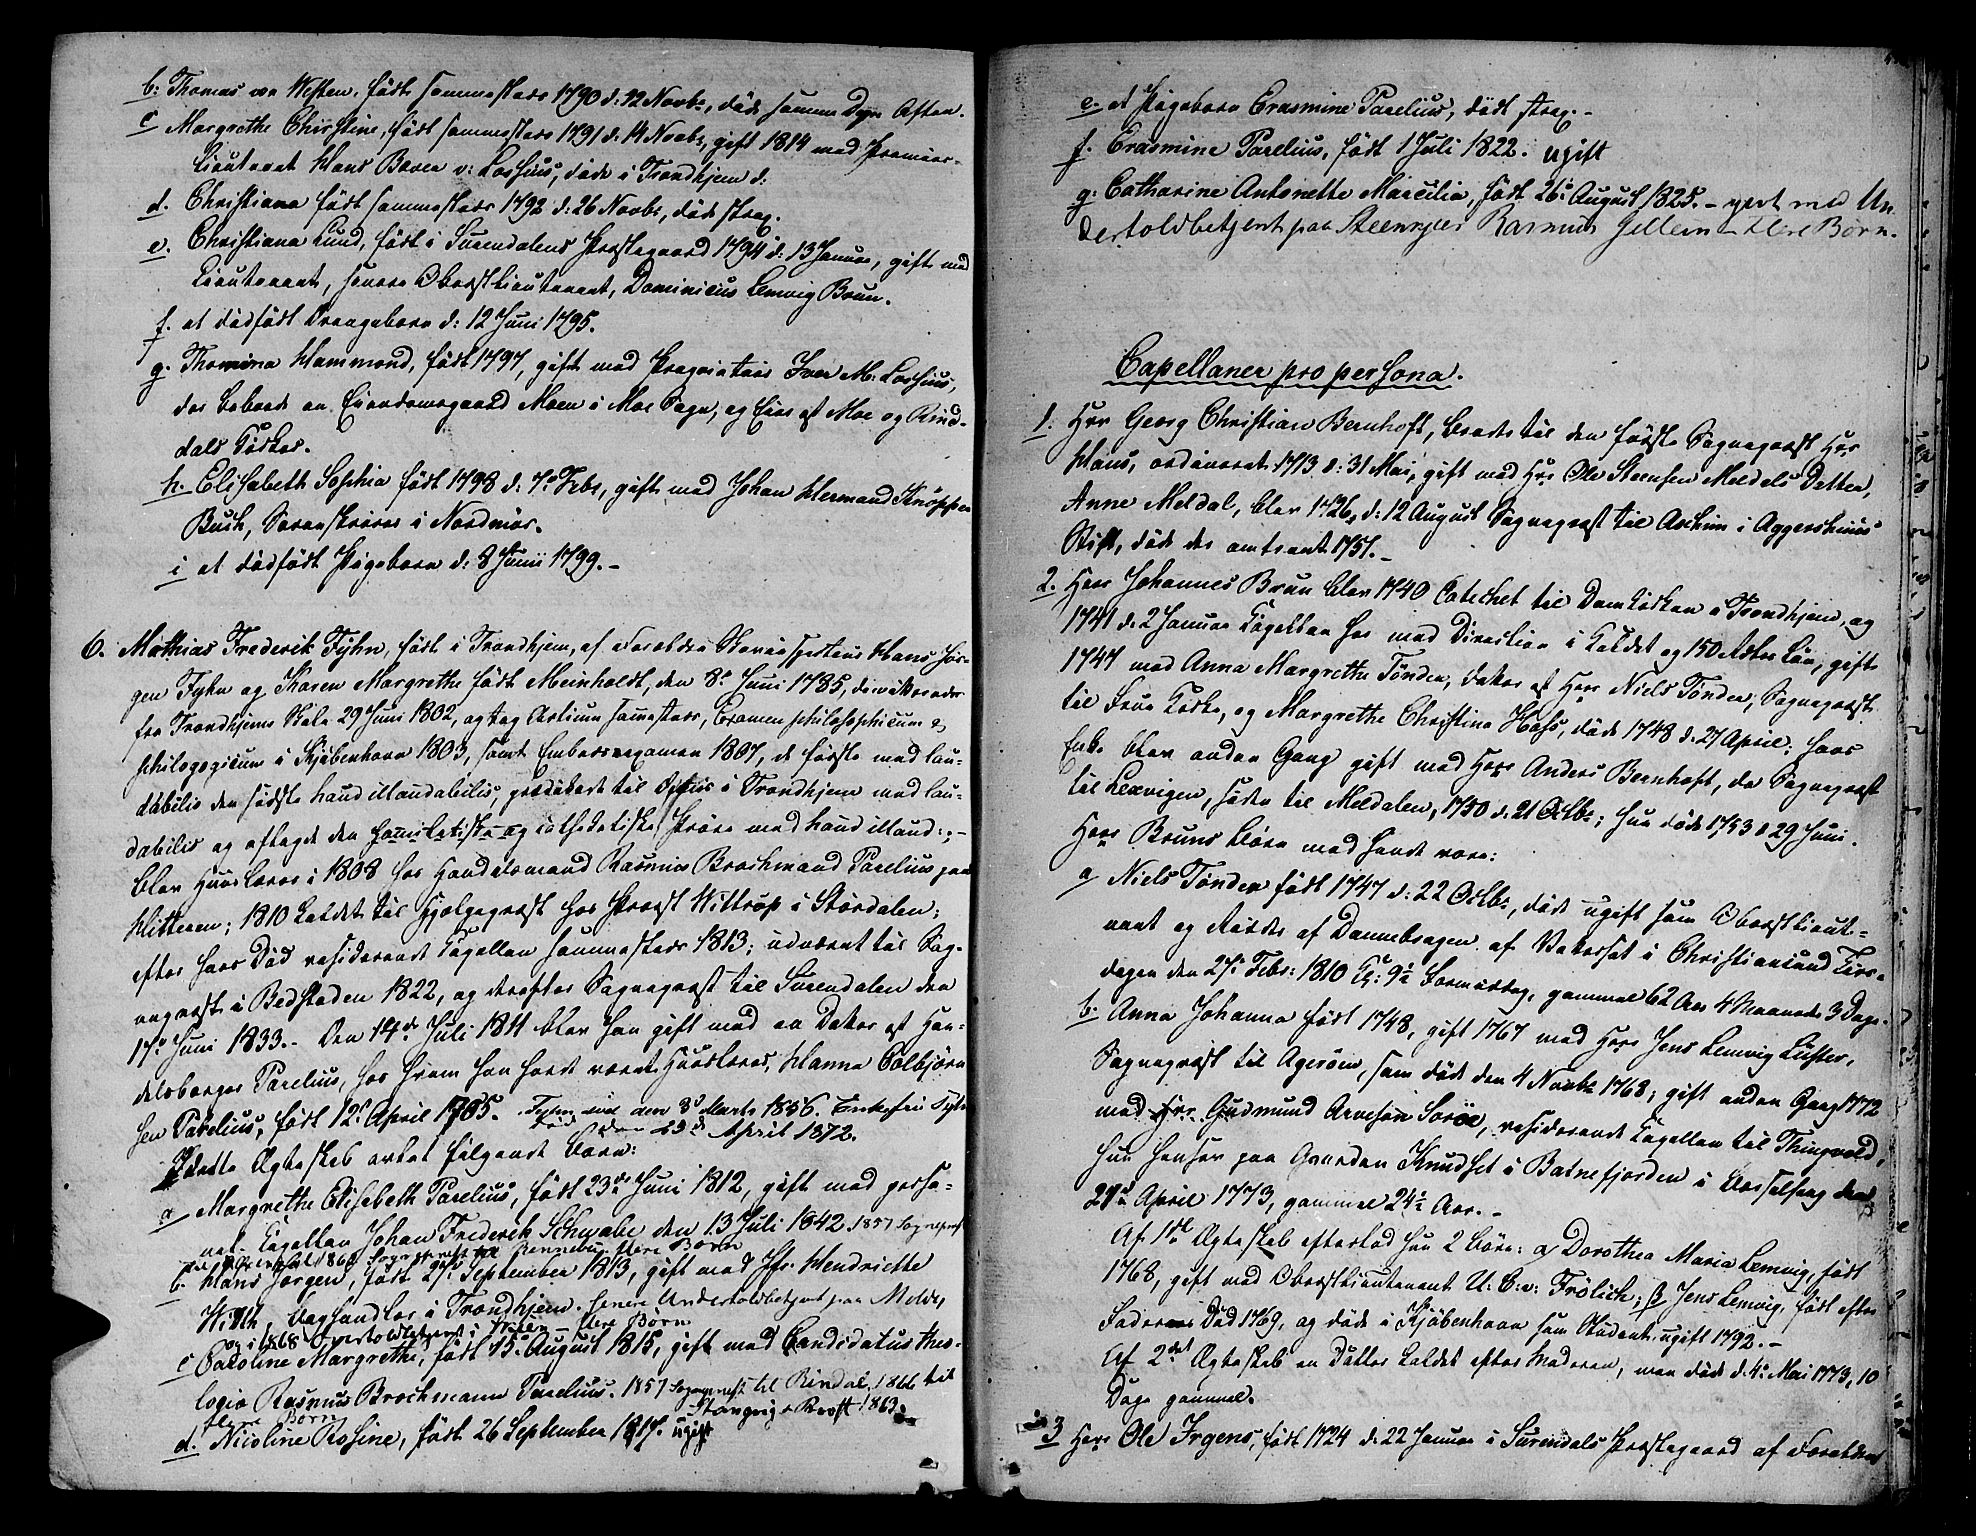 b: Thomas von Westen, født sammesteds 1790 d: 12 Novbr, døde samme Dags Aften.
c Margrethe Christine, født sammesteds 1791 d: 14 Novbr, gift 1814 med Premier-
lieutenant Hans Barer v: Lossius, døde i Trondhjem d:
d. Christiana født sammesteds 1792 d: 26 Novbr, døde strax.
e. Christiana Lund, født i Surendalens Præstegaard 1794 d: 13 Januar, gift med
Lieutenant, senere Oberstlieutenant, Dominicus Lemvig Brun.
f. et dødfødt Drengebarn d: 12 Juni 1795.
g. Thomina Hammond, født 1797, gift med Proprietair Iver M. Lossius,
der beboede en Eiendomsgaard Moen i Moe Sogn, og Eier af Moe og Rin-
dals Kirker.
h. Elisabeth Sophia født 1798 d: 7de Febr, gift med Johan Herman Knöppen
Buch, Sorenskriver i Nordmør.
i et dødfødt Pigebarn d: 8 Juni 1799.-
6. Mathias Frederik Fyhn, født i Trondhjem, af Forældre Skoeinspecteur Hans Jør-
gen Fyhn og Karen Margrethe født Meinholdt, den 8de Juni 1785, dimitteredes
fra Trondhjems Skole 29 Juni 1802, og tog Artium sammesteds, Examen philosophicum &
philologicum i Kjøbenhavn 1803, samt Embedsexamen 1807, de første med lau-
dabilis den sidste haud illaudabilis, prædikede til Dimis i Trondhjem med lau-
dabilis og aflagde den homiletiske og cathechetiske Prøve med haud illaud:;-
blev Huuslærer i 1808 hos Handelsmand Rasmus Brochmand Parelius paa
Hitteren; 1810 kaldet til Hjelpepræst hos Provst Wittrup i Stördalen;
efter hans Død residerende Capellan sammesteds 1813; udnævnt til Sog-
nepræst i Bedstaden 1822, og derefter Sognepræst til Surendalen den
17de Juni 1833.- Den 14de Juli 1811 blev han gift med en Datter af Han-
delsborger Parelius, hos hvem han havde været Huuslærer, Hanna Colbjørn-
sen Parelius, født 12te April 1785. Fyhn død den 3d Marts 1856. Enkefru Fyhn
død den 23de April 1872.
I dette Ægteskab avlet følgende Børn:
a Margrethe Elisabeth Parelius, født 23de Juni 1812, gift med perso-
nel Capellan Johan Frederik Schwabe den 13 Juli 1842. 1857 Sognepræst
1860 Sognepræst til Rennebu, flere Børn
b. Hans Jørgen, født 27de September 1813, gift med Jfr. Hendriette
With, Boghandler i Trondhjem. senere Undertoldbetjent paa Molde,
og i 1868 Overtoldbetjent i - flere Børn
c Caroline Margrethe, født 15de August 1815, gift med Candidatus theo-
logia Rasmus Brochmann Parelius. 1857 Sognepræst til Rindal, 1866 til
Stangvig & Provst 1863.
flere Børn
d. Nicoline Rosine, født 26 September 1817. ugift
e. et Pigebarn Erasmine Parelius, død strax.-
f. Erasmine Parelius, født 1 Juli 1822. ugift
g. Catharine Antonette Marcelia, født 26de August 1825.- givt med Un-
dertoldbetjent paa Steenkjær Rasmus Gellein - flere Børn.
Capellaner pro persona.
1. Herr Georg Christian Bernhoft, beredt til den første Sognepræst Herr
Hans, ordineret 1713 d: 31 Mai, gift med Hr. Ole Steensen Meldals Datter,
Anne Meldal, blev 1726, d: 12 August Sognepræst til Askim i Aggershuus
Stift, døde der omtrent 1751.-
2. Herr Johannes Brun blev 1740 Catechet til Domkirken i Trondhjem, og
1741 d: 2 Januar Capellan her med Direction i Kaldet og 150 Rdlr Løn, gift
1747 med Anna Margrethe Tønder, Datter af Herr Niels Tønder, Sognepræst
til Frue Kirke, og Margrethe Christina Hofs, døde 1748 d. 27 April; hans
Enke blev anden Gang gift med Herr Anders Bernhoft, da Sognepræst
til Lexvigen, siden til Meldalen, 1750 d. 21 Octbr; hun døde 1753 d 29 Juni.
Herr Bruns Børn med hende vare:
a Niels Tønder født 1747 d: 22 Octbr, døde ugift som Oberstlieut-
nant og Ridder af Dannebrogen af Vatersot i Christiansund Tirs-
dagen den 27de Febr: 1810 Kl: 9½ Formiddag, gammel 62 Aar 4 Maaneder 3 Dage.
b. Anna Johanna født 1748, gift 1767 med Herr Jens Lemvig Lüster,
Sognepræst til Agerøen, som døde den 4 Novbr 1768; gift anden Gang 1772
med Hr. Gudmund Arnesen Sorøe, residerende Capellan til Thingvold,
hun hensov paa Gaarden Knudset i Batnefjorden i Barselseng den
21de April 1773, gammel 24½ Aar.-
Af 1ste Ægteskab efterlod hun 2 Børn: α) Dorothea Maria Lemvig, født
1768, gift med Oberstlieutenant U: C. v: Frølich; β Jens Lemvig, født efter
Faderens Død 1769, og døde i Kjøbenhavn som Student, ugift 1792.-
Af 2det Ægteskab en Datter kaldet efter Moderen, men døde d: 4de Mai 1773, 10
Dage gammel.
3 Herr Ole Irgens, født 1724 d: 22 Januar i Surendals Præstegaard af Forældre